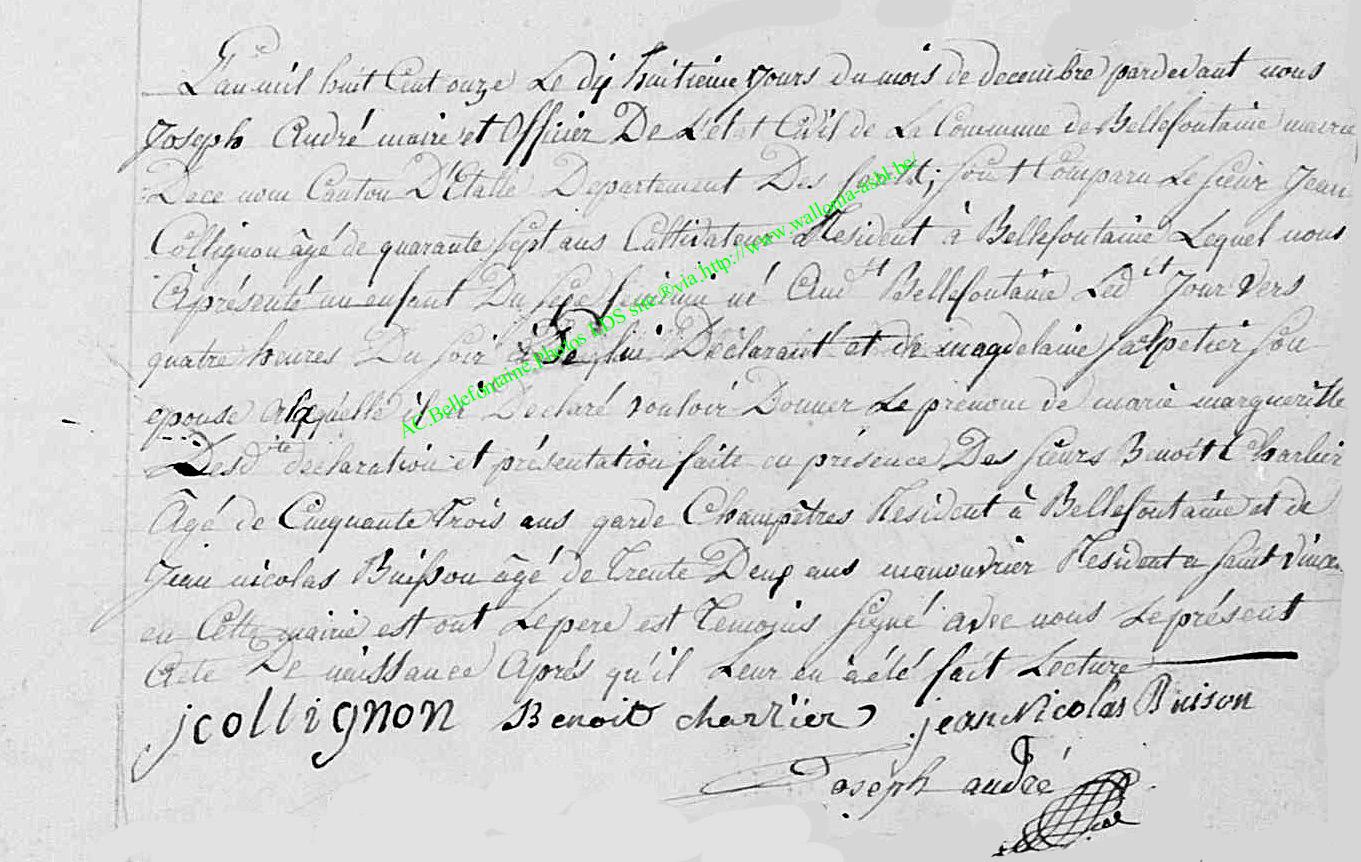 L'an mil huit Cent onze Le dix huitieme Jours du mois de decembre pardevant nous
Joseph André maire et Officier De L'état Civil de La Commune de Bellefontaine mairie
De ce nom Canton D'Etalle Departement Des forêts; sont Comparu Le sieur Jean
Collignon âgé de quarante sept ans Cultivateur Resident à Bellefontaine Lequel nous
à présenté un enfant Du sexe feminin né Aud.it Bellefontaine Led.it Jour vers
quatre heures Du soir De lui Déclarant et de magdelaine salpetier son
epouse auquelle il à Déclaré vouloir Donner Le prénom de marie margueritte
Lesd.ite declaration et présentation faite en présence Des sieurs Benoit Charlier
Âgé de Cinquante trois ans garde Champêtres Résident à Bellefontaine et de
Jean nicolas Buisson âgé de trente Deux ans manouvrier Resident a saint vincen
en Cette mairie est ont Le pere est temoins signé avec nous Le présent
Acte De naissance Après qu'il Leur en à été fait Lecture
jcollignon Benoit charlier jean Nicolas Buison
Joseph andré
AC.Bellefontaine Photos EDS site ®via http://www.wallonia-asbl.be/